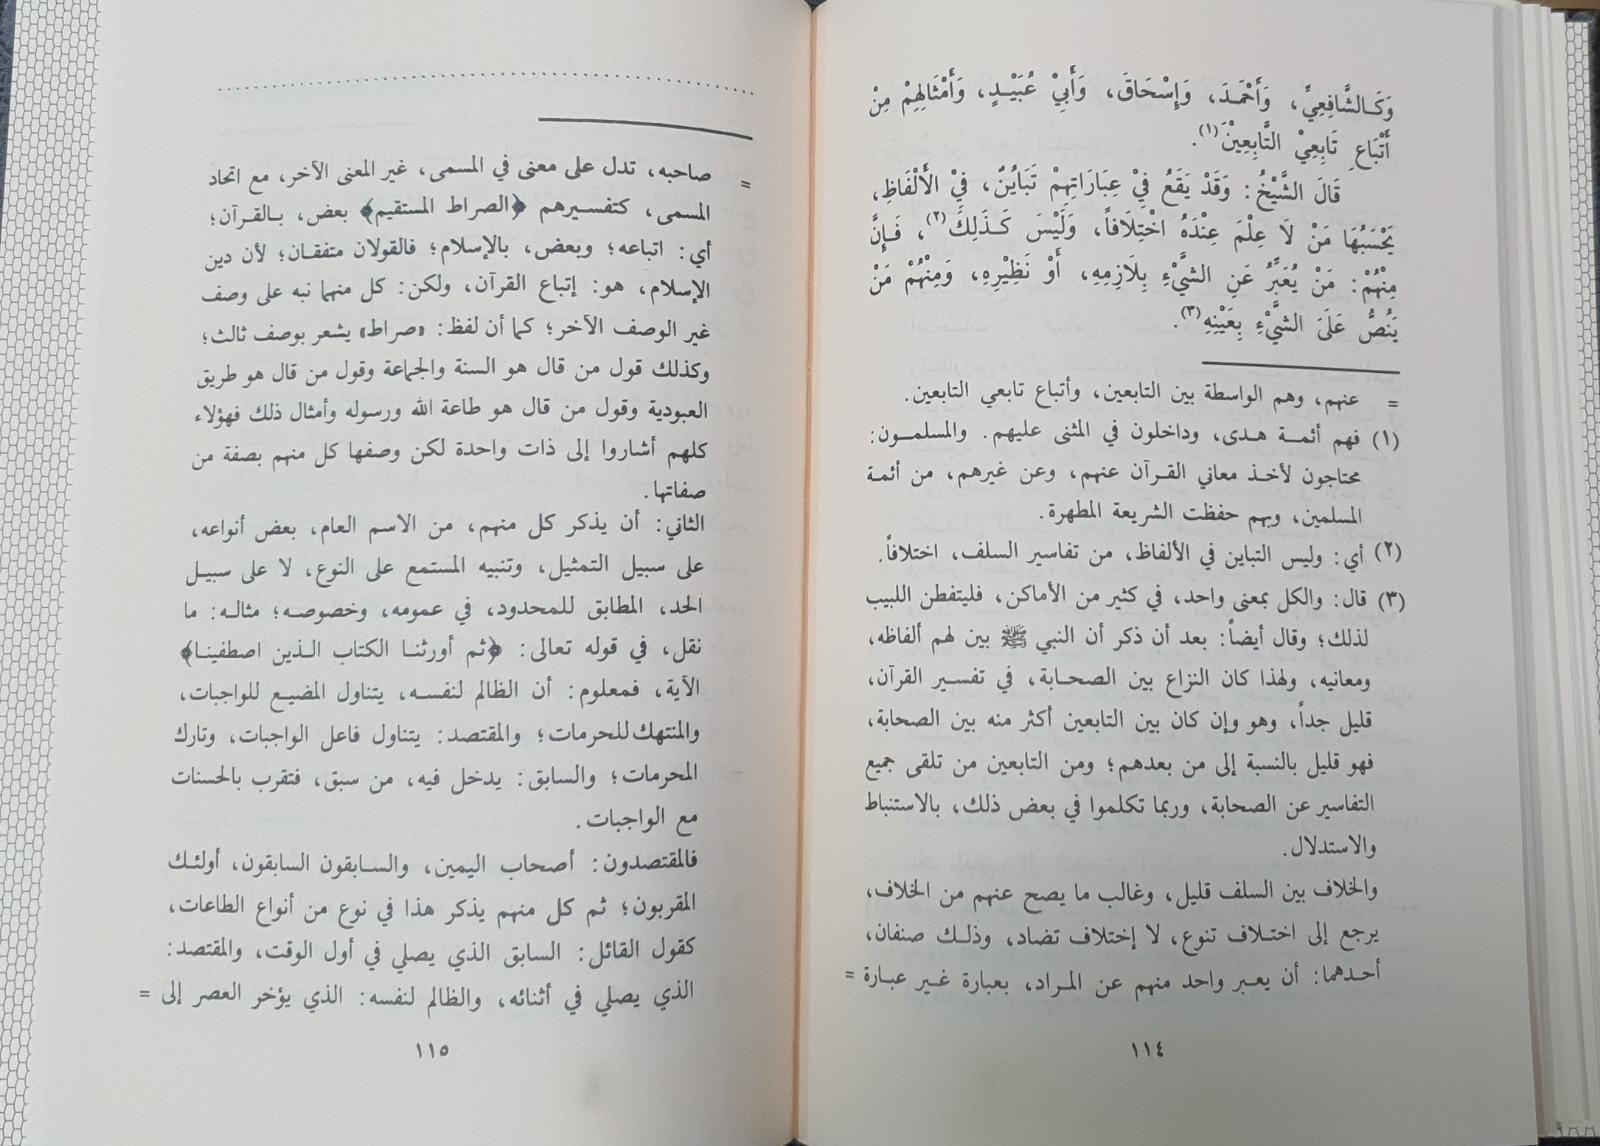 وَكَـالشَّافِعِيِّ، وَأَحْمَـدَ، وَإِسْحَاقَ، وَأَبِيْ عُبَيْـدٍ، وَأَمْثَالِهِمْ مِنْ
أَتْبَاعِ تَابِعِيْ التَّابِعِيْنَ(١).
قَالَ الشَّيْخُ: وَقَدْ يَقَعُ فِيْ عِبَارَاتِهِمْ تَبَايُنٌ، فِيْ الْأَلْفَاظِ،
يَحْسَبُهَا مَنْ لَا عِلْمَ عِنْدَهُ اخْتِلَافاً، وَلَيْسَ كَـذَلِكَ(٢)، فَـإِنَّ
مِنْهُمْ: مَنْ يُعَبِّرُ عَنِ الشَّيْءِ بِلَازِمِهِ، أَوْ نَظِيْرِهِ، وَمِنْهُمْ مَنْ
يَنُصُّ عَلَىَ الشَّيْءِ بِعَيْنِهِ(٣).
= عنهم، وهم الواسطة بين التابعين، وأتباع تابعي التابعين.
(١) فهم أئمـة هـدى، وداخلون في المثنى عليهم. والمسلمـون:
محتاجون لأخـذ معاني القـرآن عنهم، وعن غيرهم، من أئمـة
المسلمين، وبهم حفظت الشريعة المطهرة.
(٢) أي: وليس التباين في الألفاظ، من تفاسير السلف، اختلافاً.
(٣) قال: والكل بمعنى واحد، في كثير من الأماكن، فليتفطن اللبيب
لذلك؛ وقال أيضاً: بعد أن ذكر أن النبي ﷺ بين لهم ألفاظه،
ومعانيه، ولهذا كان النزاع بين الصحـابة، في تفسـير القرآن،
قليل جداً، وهو وإن كان بين التابعين أكثر منه بين الصحابة،
فهو قليل بالنسبة إلى من بعدهم؛ ومن التابعين من تلقى جميع
التفاسير عن الصحابة، وربما تكلموا في بعض ذلك، بالاستنباط
والاستدلال.
والخلاف بين السلف قليل، وغالب ما يصح عنهم من الخلاف،
يرجع إلى اختـلاف تنوع، لا إختلاف تضاد، وذلـك صنفان،
أحـدهما: أن يعـبر واحد منهم عن المـراد، بعبارة غـير عبارة =
١١٤
= صاحبه، تدل على معنى في المسمى، غير المعنى الآخر، مع اتحاد
المسمى، كتفسـيرهم ﴿الصراط المستقيم﴾ بعض، بـالقـرآن؛
أي: اتباعه؛ وبعض، بالإسلام؛ فالقولان متفقـان؛ لأن دين
الإسلام، هو: إتباع القرآن، ولكن: كل منهما نبه على وصف
غير الوصف الآخر؛ كما أن لفظ: «صراط» يشعر بوصف ثالث؛
وكذلك قول من قال هو السنة والجماعة وقول من قال هو طريق
العبودية وقول من قال هو طاعة الله ورسوله وأمثال ذلك فهؤلاء
كلهم أشاروا إلى ذات واحدة لكن وصفها كل منهم بصفة من
صفاتها.
الثاني: أن يذكر كل منهم، من الاسم العام، بعض أنواعه،
على سبيل التمثيل، وتنبيه المستمع على النوع، لا على سبيـل
الحد، المطابق للمحدود، في عمومه، وخصوصـه؛ مثالـه: ما
نقل، في قوله تعالى: ﴿ثم أورثنـا الكتاب الـذين اصطفينـا﴾
الآية، فمعلوم: أن الظالم لنفسـه، يتناول المضيـع للواجبات،
والمنتهك للحرمات؛ والمقتصد: يتناول فاعل الواجبات، وتارك
المحرمات؛ والسابق: يدخل فيه، من سبق، فتقرب بالحسنات
مع الواجبات.
فالمقتصدون: أصحاب اليمين، والسـابقون السابقون، أولئـك
المقربون؛ ثم كل منهم يذكر هذا في نوع من أنواع الطاعات،
كقول القائل: السابق الذي يصلي في أول الوقت، والمقتصد:
الذي يصلي في أثنائه، والظالم لنفسه: الذي يؤخر العصر إلى =
١١٥